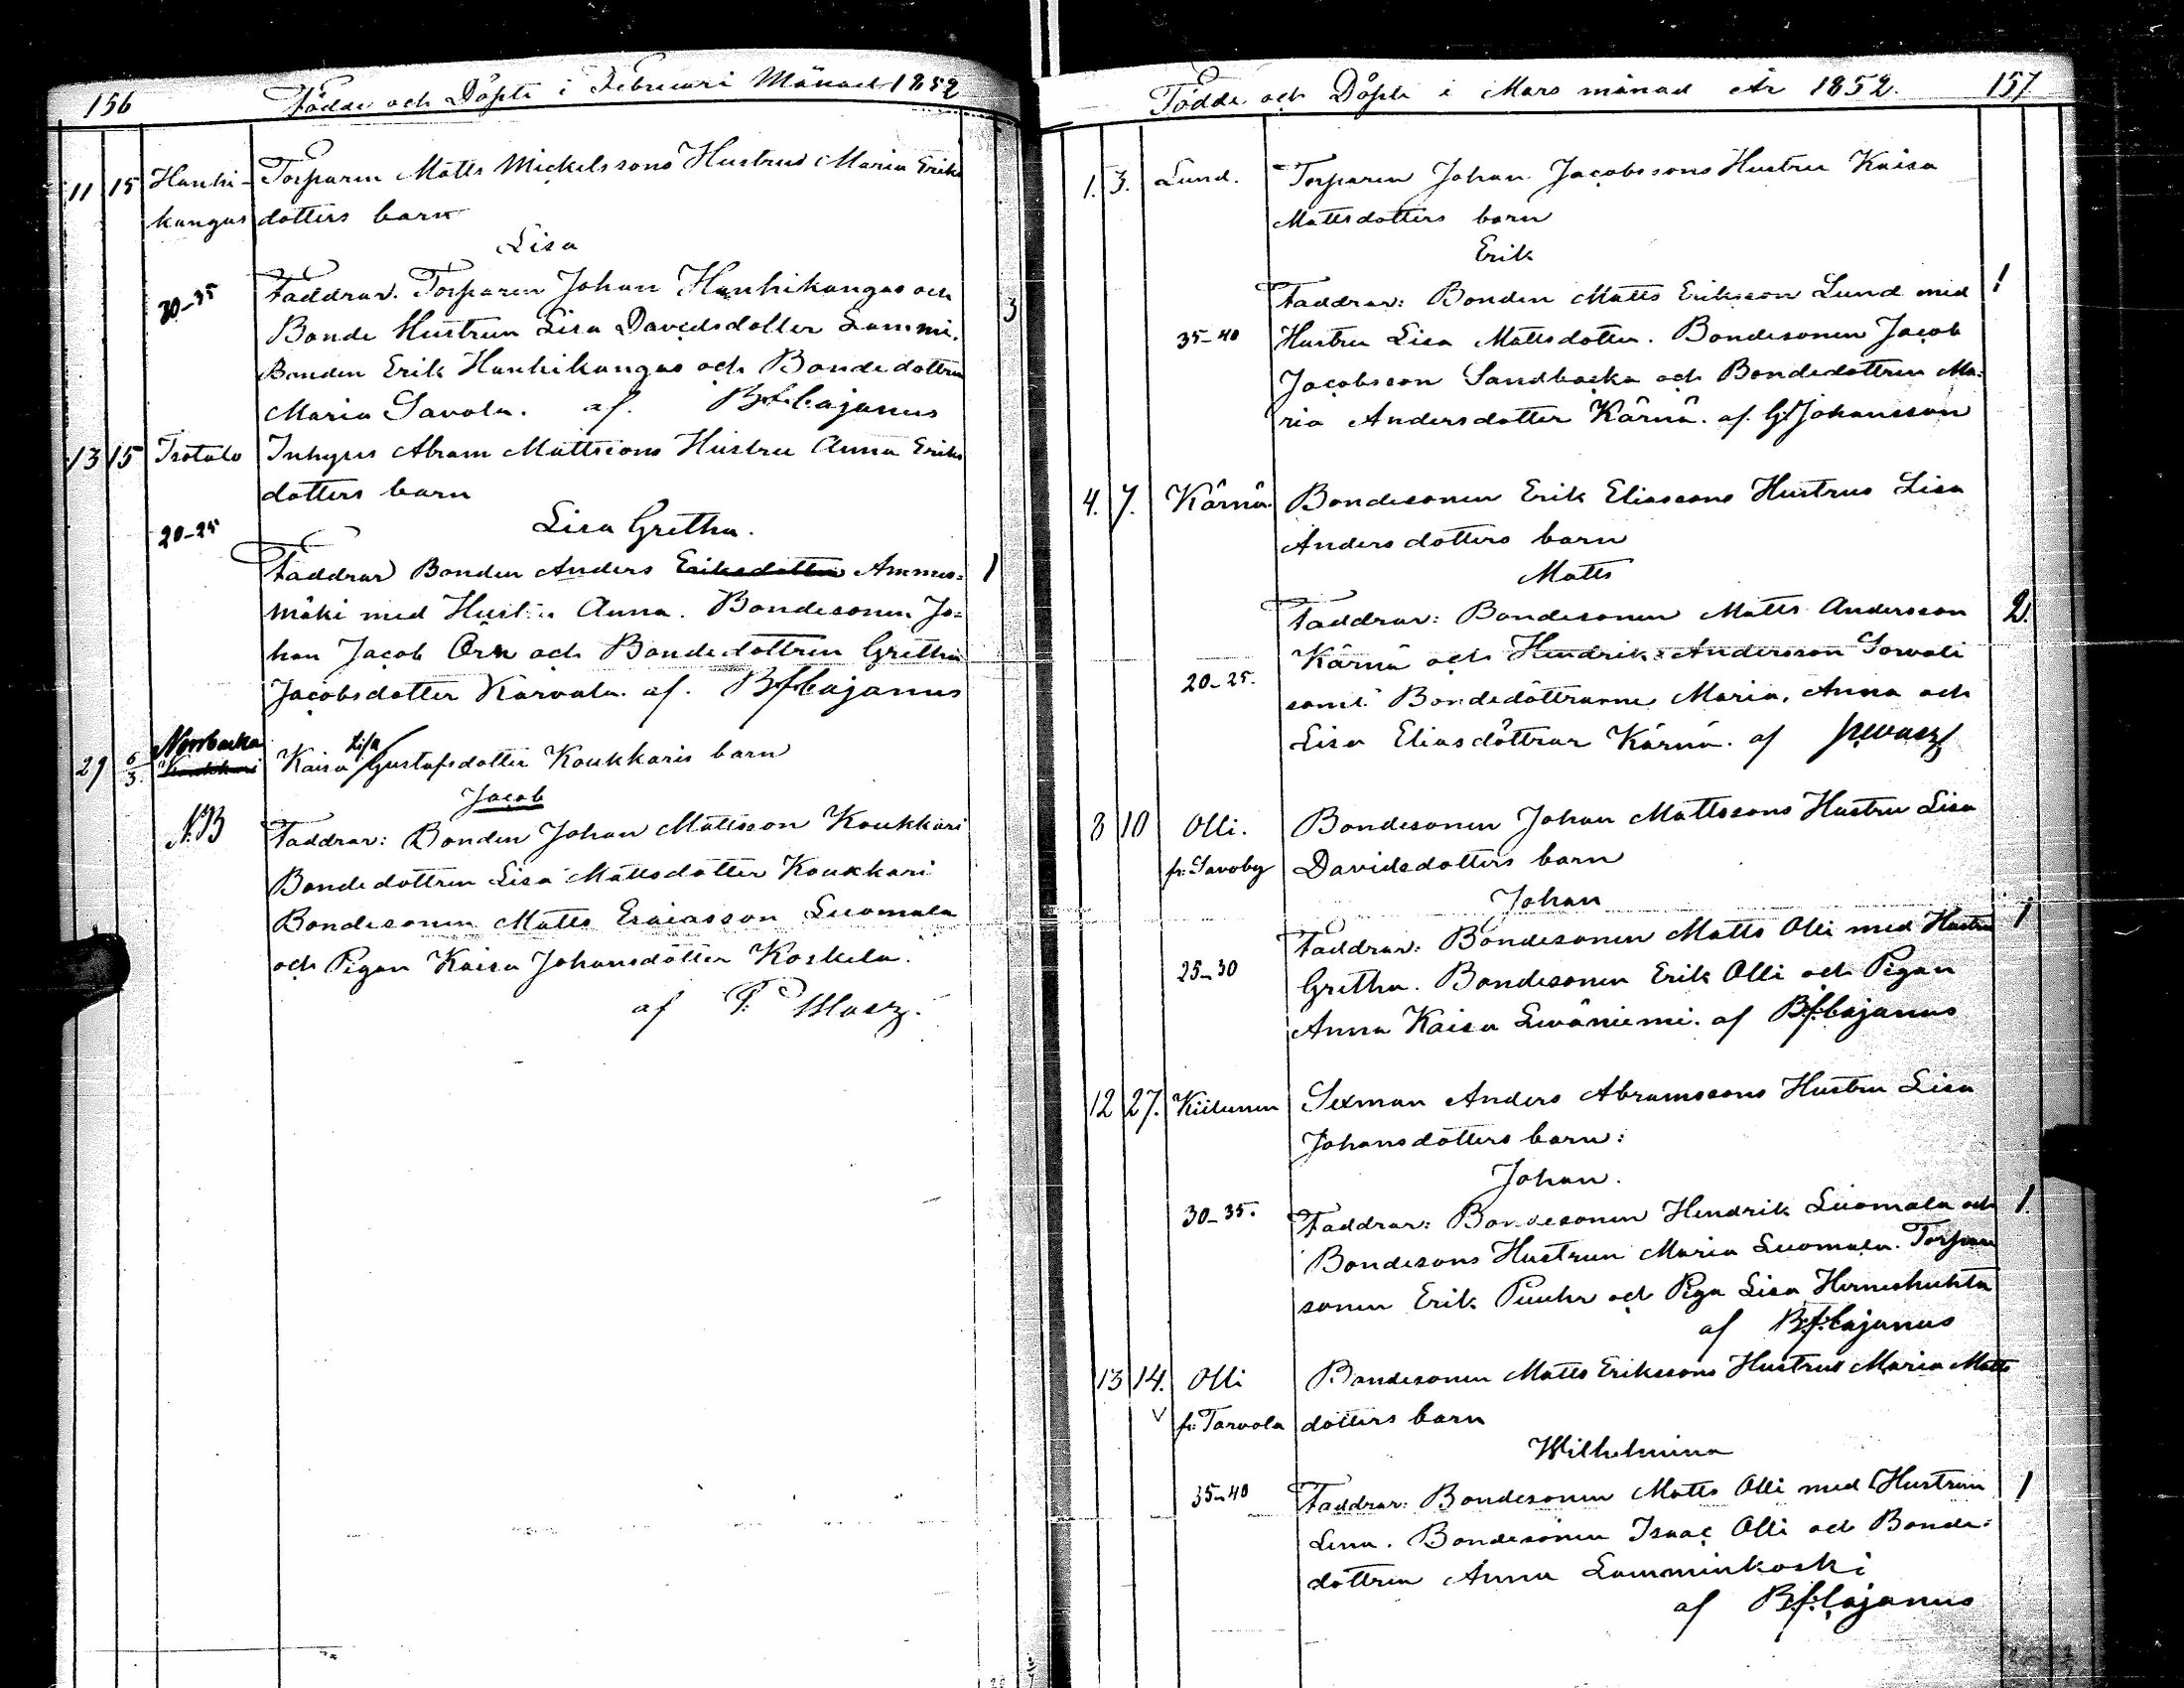 156 Födde och Döpte i Februari Månad 1852
11 15 Hanhi- Torparen Matts Mickelssons Hustrus Maria Eriks
kangas dotters barn
Lisa
30-35 Faddrar. Torparen Johan Hanhikangas och
Bonde Hustrun Lisa Davidsdotter Lammi. 3
Bonden Erik Hanhikangas och Bondedottren
Maria Savola. af. B.f. Cajanus
13 15 Isotalo Inhyses Abram Mattssons Hustru Anna Eriks
dotters barn
20-25 Lisa Gretha.
Faddrar Bonden Anders Eriksdotter Ammes= 1
mäki med Hustru Anna. Bondesonen Jo=
han Jacob Örn och Bondedottren Gretha
Jacobsdotter Karvala. af. B.f. Cajanus
Norrbacka Lisa
29 6/3 Koukkari Kaisa Gustafsdotter Koukkaris barn
Jacob
N.B Faddrar: Bonden Johan Mattsson Koukkari
Bondedottren Lisa Mattsdotter Koukkari
Bondesonen Matts Esaiasson Luomala
och Pigan Kaisa Johansdotter Koskela.
af
Födde och Döpte i Mars månad År 1852. 157
1. 3. Lund. Torparen Johan Jacobssons Hustru Kaisa
Mattsdotters barn
Erik
Faddrar: Bonden Matts Eriksson Lund med 1
35-40 Hustru Lisa Mattsdotter. Bondesonen Jacob
Jacobsson Sandbacka och Bondedottren Ma=
ria Andersdotter Kärnä. af. G. Johansson
4. 7. Kärnä. Bondesonen Erik Eliassons Hustrus Lisa
Anders dotters barn
Matts
Faddrar: Bondesonen Matts Andersson 2.
Kärnä och Hendrik Andersson Sorvali
20-25. samt Bondedöttrarne Maria, Anna och
Lisa Eliasdöttrar Kärnä. af
8 10 Olli. Bondesonen Johan Mattssons Hustru Lisa
fr. Savoby Davidsdotters barn
Johan
Faddrar: Bondesonen Matts Olli med Hustru 1
25-30 Gretha. Bondesonen Erik Olli och Pigan
Anna Kaisa Lwäniemi. af B.f. Cajanus
12 27. Kiilunen Sexman Anders Abramssons Hustru Lisa
Johansdotters barn:
Johan.
30-35. Faddrar: Bondesonen Hendrik Luomala och 1.
Bondesons Hustrun Maria Luomala. Torpare
sonen Erik och Piga Lisa Herneshuhta
af B.f. Cajanus
13 14. Olli Bondesonen Matts Erikssons Hustrus Maria Matts
V fr. Tarvola dotters barn
Wilhelmina
35-40 Faddrar: Bondesonen Matts Olli med Hustrun 1
Lena. Bondesonen Isaac Olli och Bonde=
dottren Anna Lamminkoski
af B.f. Cajanus